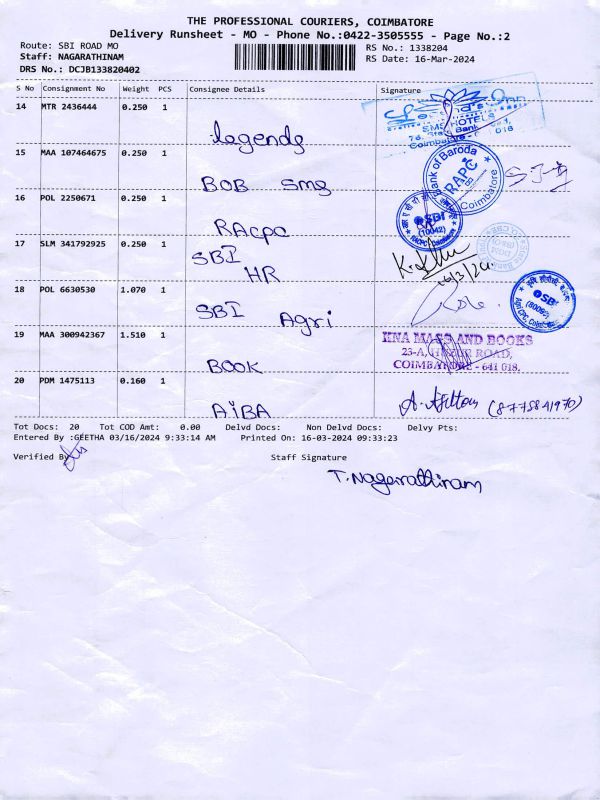 THE PROFESSIONAL COURIERS, COIMBATORE
Delivery Runsheet - MO - Phone No.:0422-3505555 - Page No.:2
Route: SBI ROAD MO
RS No.: 1338204
Staff: NAGARATHINAM
RS Date: 16-Mar-2024
DRS No.: DCJB133820402
S No Consignment No Weight PCS Consignee Details Signature
14 MTR 2436444 0.250 1
Legends
SMS HOTELS
Coimbatore
15 MAA 107464675 0.250 1
BOB smg
Bank of Baroda
RAPC
Coimbatore
16 POL 2250671 0.250 1
RACPC
SBI
(10042)
17 SLM 341792925 0.250 1
SBI
HR
16/3/24
18 POL 6630530 1.070 1
SBI Agri
SBI
19 MAA 300942367 1.510 1
BOOK
KNA MASS AND BOOKS
23-A, ROAD,
COIMBATORE - 641 018.
20 PDM 1475113 0.160 1
AIBA
(8775841970)
Tot Docs: 20 Tot COD Amt: 0.00 Delvd Docs: Non Delvd Docs: Delvy Pts:
Entered By :GEETHA 03/16/2024 9:33:14 AM Printed On: 16-03-2024 09:33:23
Verified By
Staff Signature
T. Nagarathinam